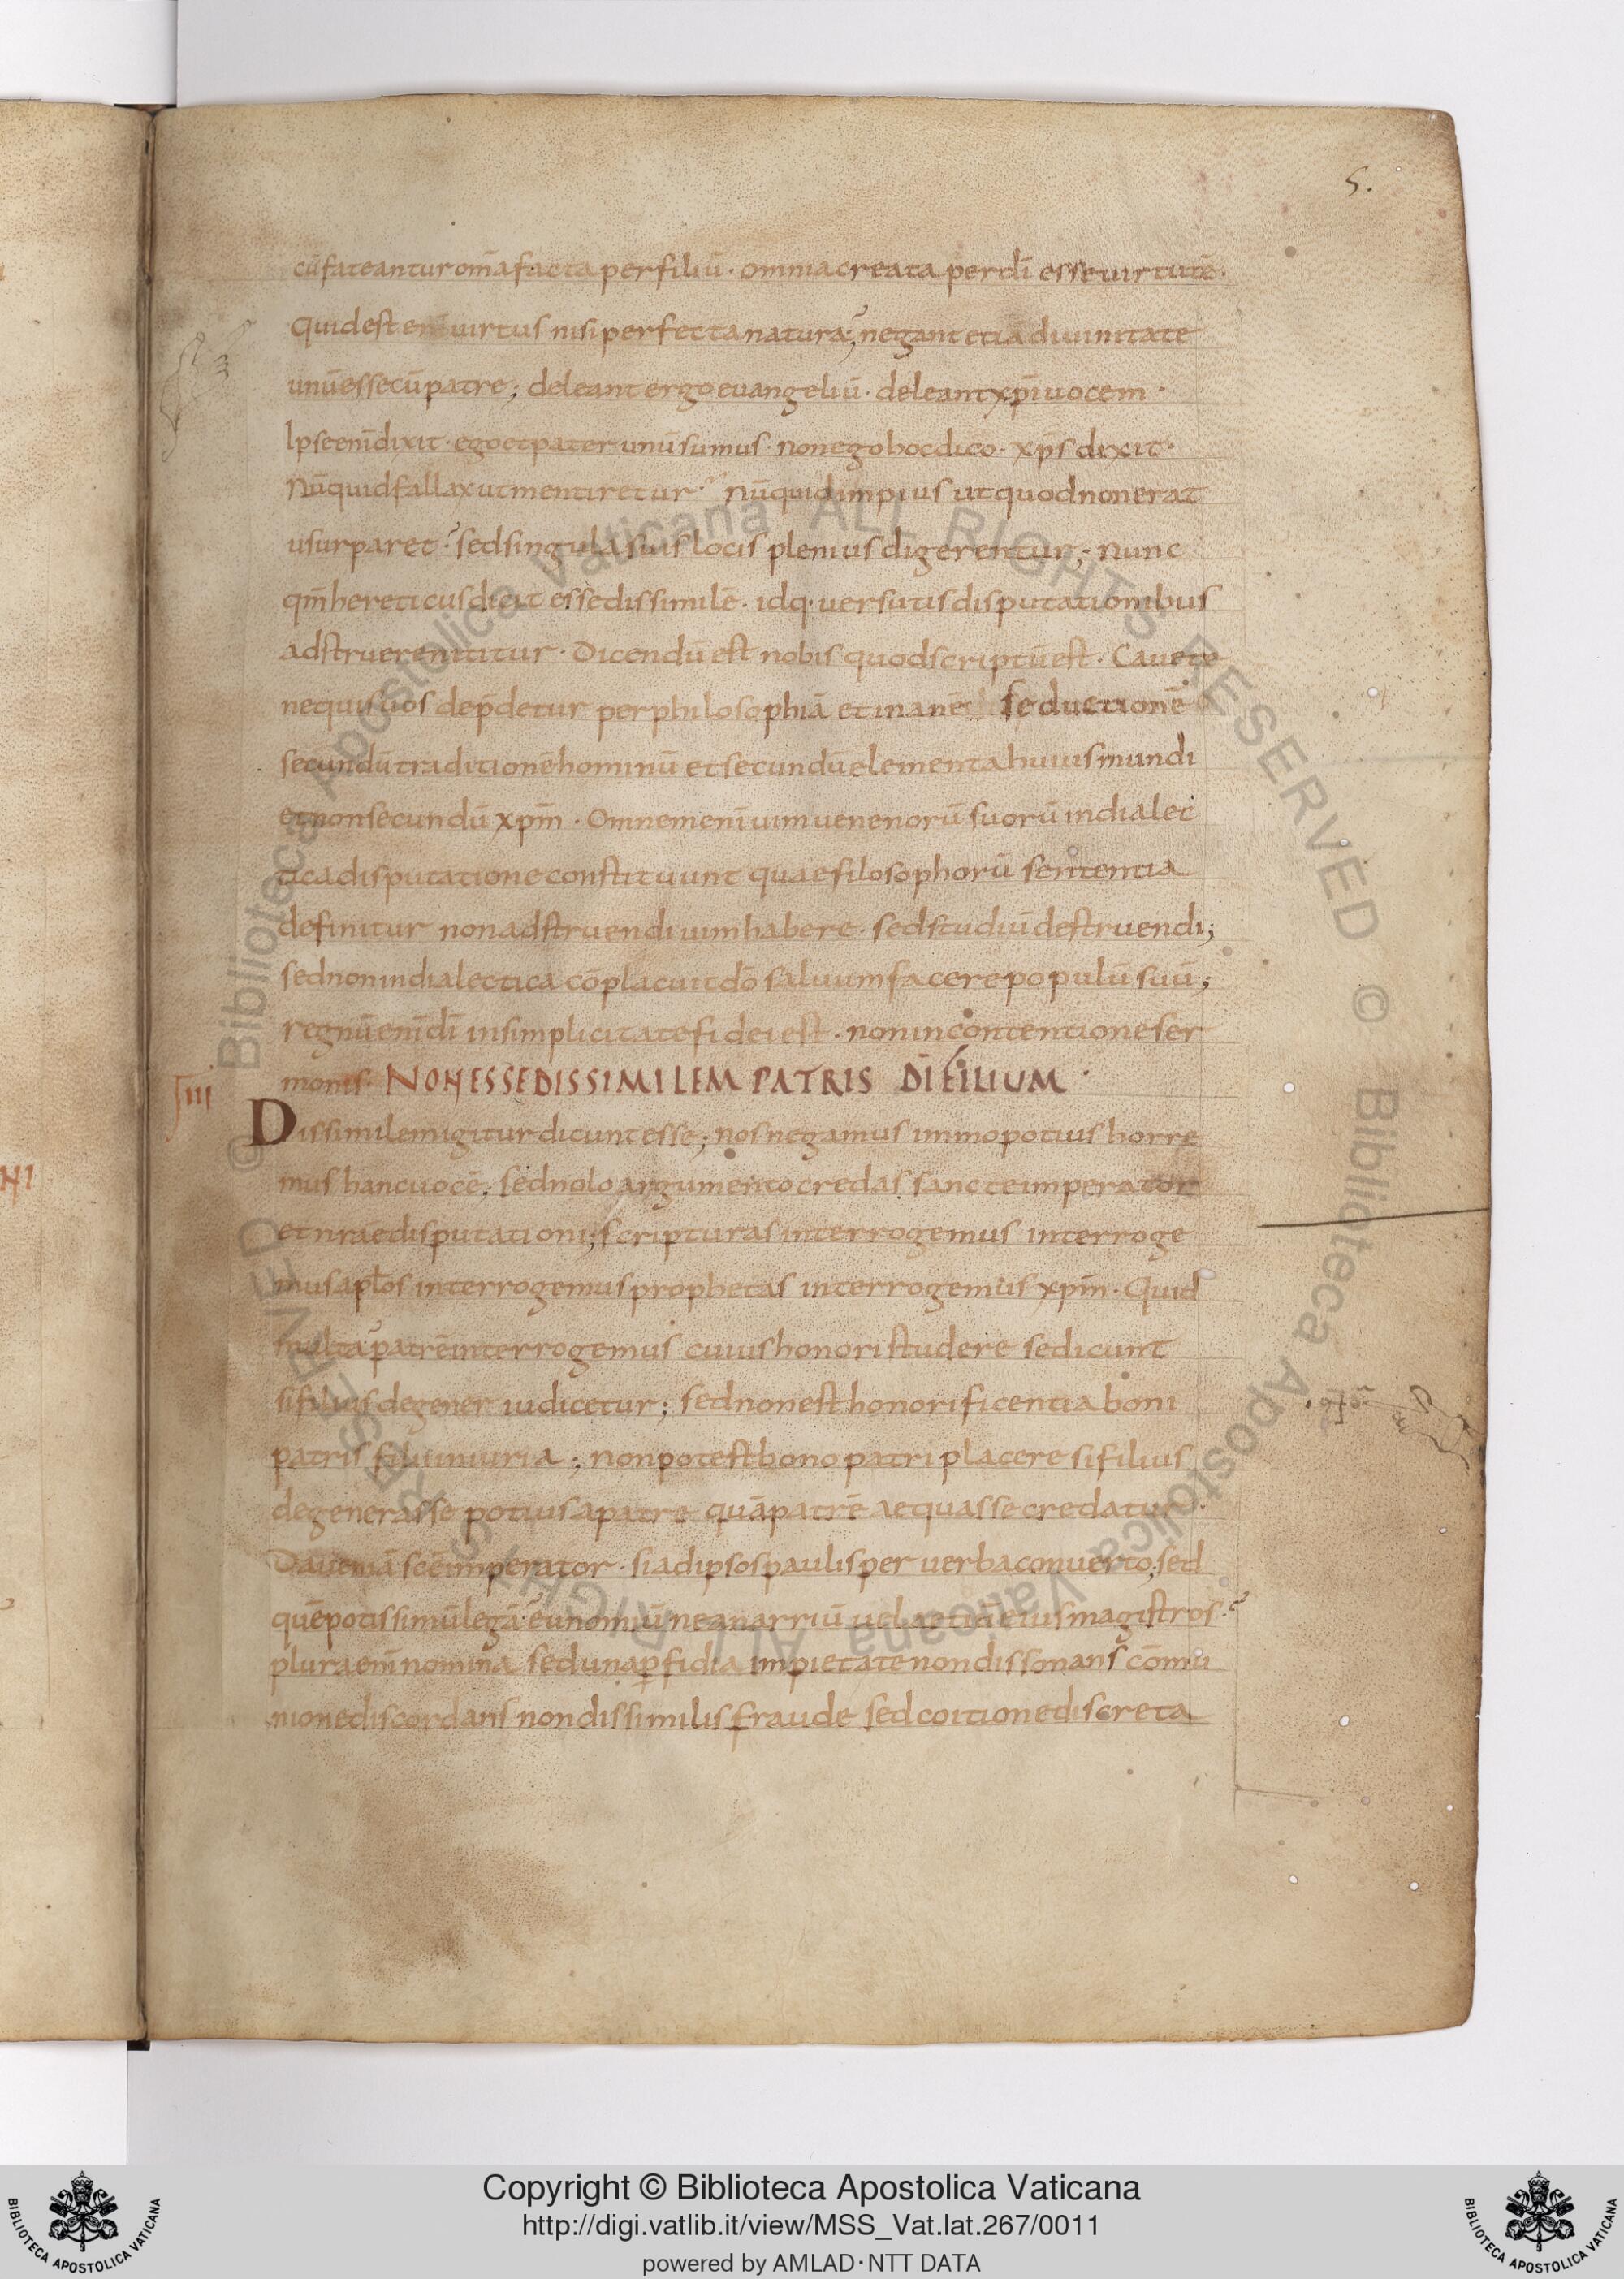 5.
cū fateantur om̄a facta per filiū · omnia creata per dī esse uirtutē ·
Quid est enī uirtus nisi perfecta natura; negant etiā diuinitate
unū esse cū patre; deleant ergo euangeliū · deleant xpī uocem ·
Ipse enī dixit · ego et pater unū sumus · non ego hoc dico · xp̄s dixit ·
Nūquid fallax ut mentiretur · Nūquid impius ut quod non erat
usurparet · sed singula suis locis plenius digerentur; Nunc
qm̄ hereticus dicit esse dissimilē · idq· uersutis disputationibus
adstruere nititur · Dicendū est nobis quod scriptū est · Cauete
nequis uos dep̄detur per philosophiā et inanē seductionē
secundū traditionē hominū et secundū elementa huius mundi
et non secundū xpm̄ · Omnem enī uim uenenorū suorū in dialec
tica disputatione constituunt quae filosophorū sententia
definitur non adstruendi uim habere · sed studiū destruendi;
sed non in dialectica cōplacuit dō saluum facere populū suū;
regnū enī dī in simplicitate fidei est · non in contentione ser
monis · NON ESSE DISSIMILEM PATRIS DĪ FILIUM ·
IIII
Dissimilem igitur dicunt esse; nos negamus immo potius horre
mus hanc uocē; sed nolo argumento credas sancte imperator
et nrae disputationi; scripturas interrogemus interroge
mus aplos interrogemus prophetas interrogemus xpm̄ · Quid
multa patrē interrogemus cuius honori studere se dicunt
si filius degener iudicetur; sed non est honorificentia boni
patris filii iniuria; non potest bono patri placere si filius
degenerasse potius a patre quā patrē aequasse credatur ·
Da ueniā scē imperator · si ad ipsos paulisper uerba conuerto; sed
quē potissimū legā eunomiū ne an arriū uel aetiū eius magistros ·
plura enī nomina sed una pfidia impietate non dissonans cōmu
nione discordans non dissimilis fraude sed coitione discreta
Copyright © Biblioteca Apostolica Vaticana
http://digi.vatlib.it/view/MSS_Vat.lat.267/0011
powered by AMLAD · NTT DATA
BIBLIOTECA APOSTOLICA VATICANA
BIBLIOTECA APOSTOLICA VATICANA
© Biblioteca Apostolica Vaticana ALL RIGHTS RESERVED © Biblioteca Apostolica Vaticana ALL RIGHTS RESERVED